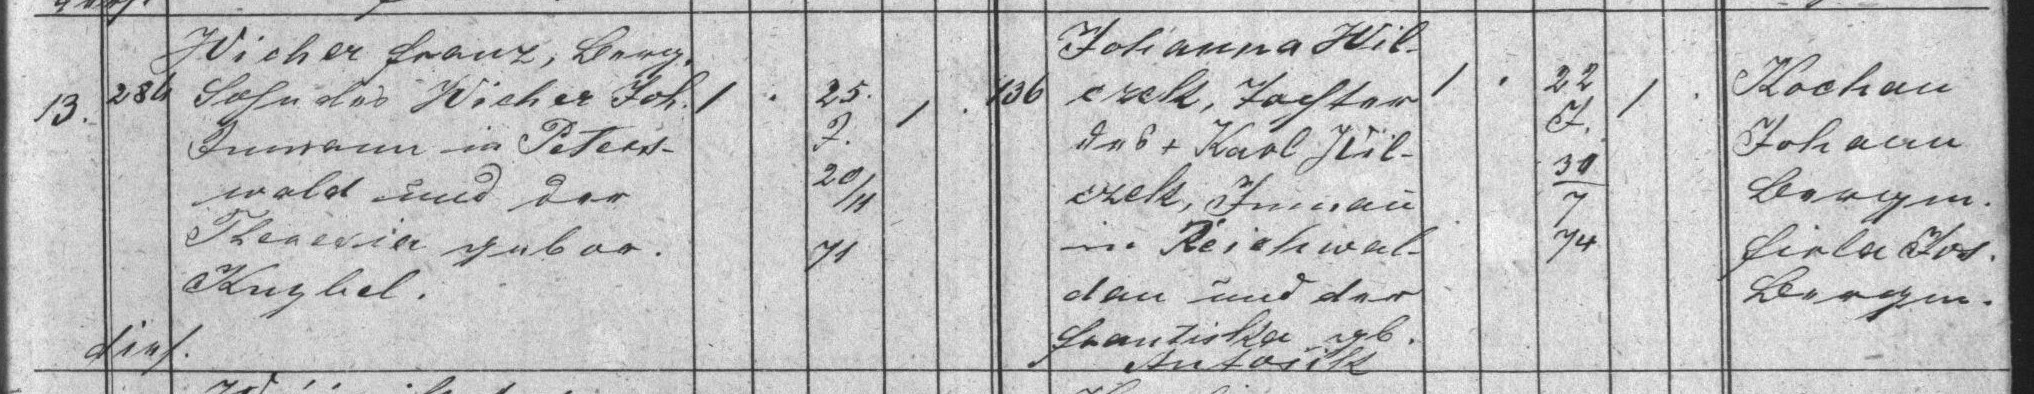 13.
284
Wicher Franz, Berg.
Sohn des Wicher Joh.
Inmann in Peters-
wald und der
Theresia gebor.
Knybel.
dies.
1 .
25.
J.
20/11
71
1 .
136
Johanna Wil-
czek, Tochter
des + Karl Wil-
czek, Inman̄
in Reichwal-
dau und der
Frantiska gb.
Antosik
1 .
22
J.
30
7
74
1 .
Kochan
Johann
Bergm.
Fiola Jos.
Bergm.